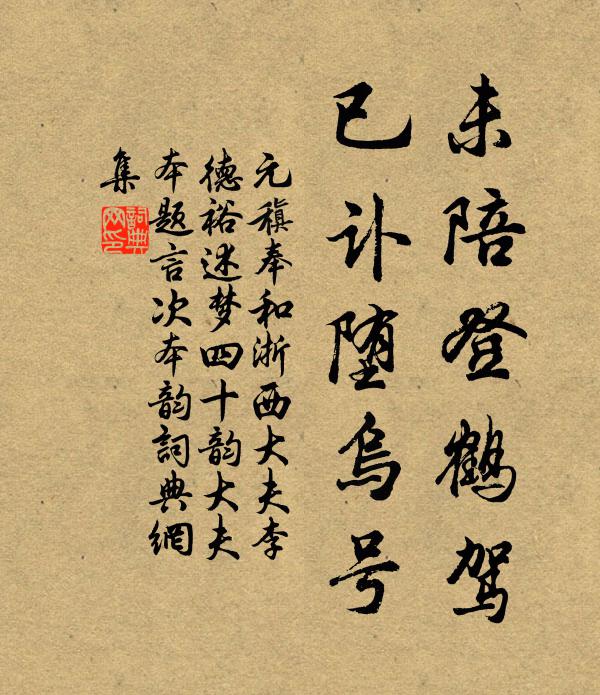 未陪登鹤驾
已讣堕乌号
元稹奉和浙西大夫李
德裕述梦四十韵大夫
本题言次本韵詞典網
集
詞典
网印